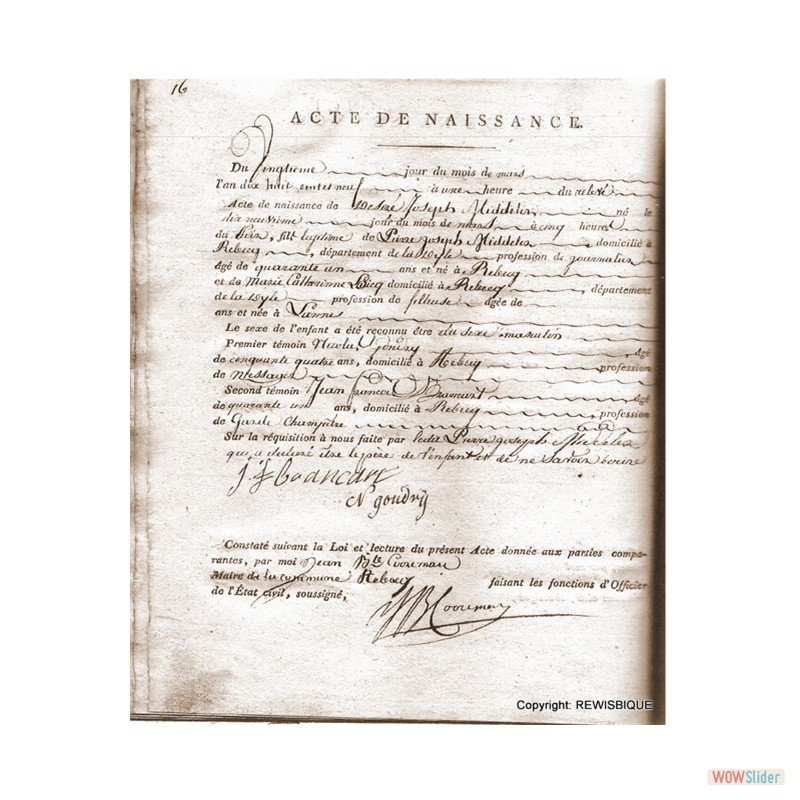 16
ACTE DE NAISSANCE.
Du Vingtieme jour du mois de mars
l'an dix huit cent et neuf à une heure du
Acte de naissance de Joseph Middeler né le
dix neuvieme jour du mois de mars à cinq heures
du Soir, fils legitime de Pierre joseph Middeler, domicilié à
Rebecq, département de la Dyle profession de journalier
âgé de quarante un ans et né à Rebecq
et de Marie Catharinne domicilié à Rebecq, département
de la Dyle profession de fileuse âgée de
ans et née à
Le sexe de l'enfant a été reconnu être du sexe masculin
Premier témoin Nicolas Goudry, âgé
de cinquante quatre ans, domicilié à Rebecq profession
de Messager
Second témoin Jean francois Brancart âgé
de quarante un ans, domicilié à Rebecq, profession
de Garde Champetre
Sur la réquisition à nous faite par ledit Pierre joseph
qui a declaré être le père de l'enfant et de ne savoir
Brancart
N goudry
Constaté suivant la Loi et lecture du présent Acte donnée aux parties compa-
rantes, par moi Jean Bte Cooreman
Maire de la commune Rebecq faisant les fonctions d'Officier
de l'État civil, soussigné,
JB Cooreman
Copyright: REWISBIQUE
WOWSlider